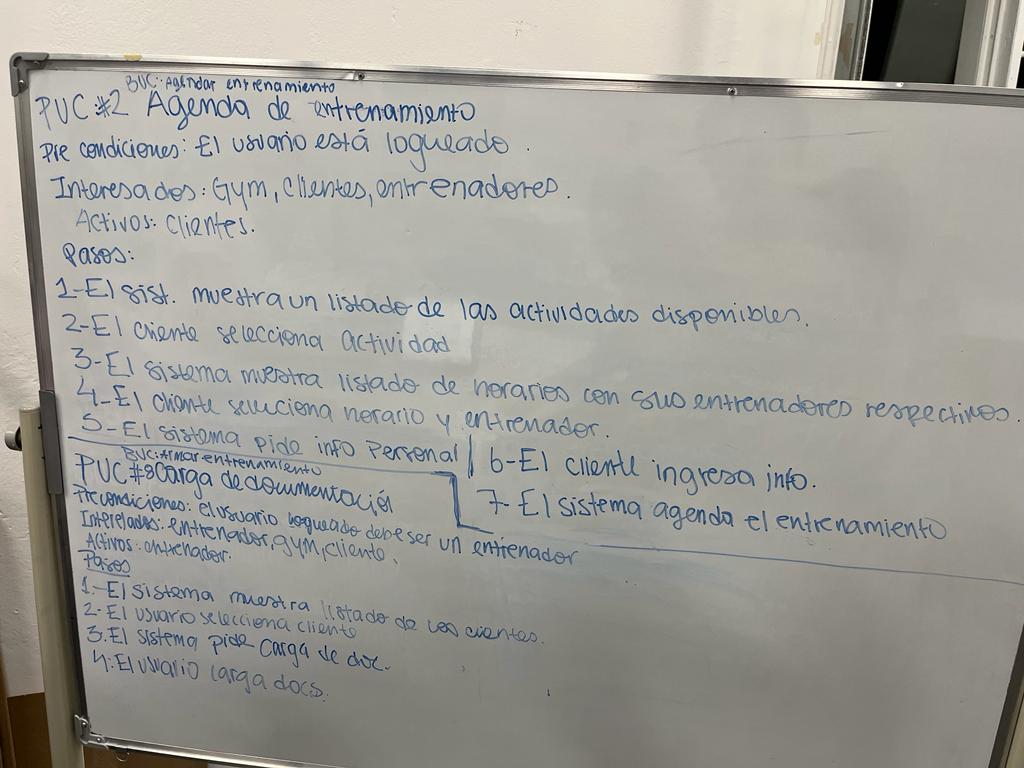 BUC: Agendar entrenamiento
PUC #2 Agenda de entrenamiento
Pre condiciones: El usuario está logueado.
Interesados: Gym, clientes, entrenadores.
Activos: Clientes.
Pasos:
1-El sist. muestra un listado de las actividades disponibles.
2-El cliente selecciona actividad
3-El sistema muestra listado de horarios con sus entrenadores respectivos.
4-El cliente seleciona horario y entrenador.
5-El sistema pide info Personal
6-El cliente ingresa info.
7-El sistema agenda el entrenamiento
BUC: Armar entrenamiento
PUC #8 Carga de documentación
Precondiciones: el usuario logueado debe ser un entrenador
Interesados: entrenador, gym, cliente.
Activos: entrenador.
Pasos
1.-El sistema muestra listado de los clientes.
2-El usuario selecciona cliente
3.El sistema pide carga de doc.
4:El usuario carga docs.